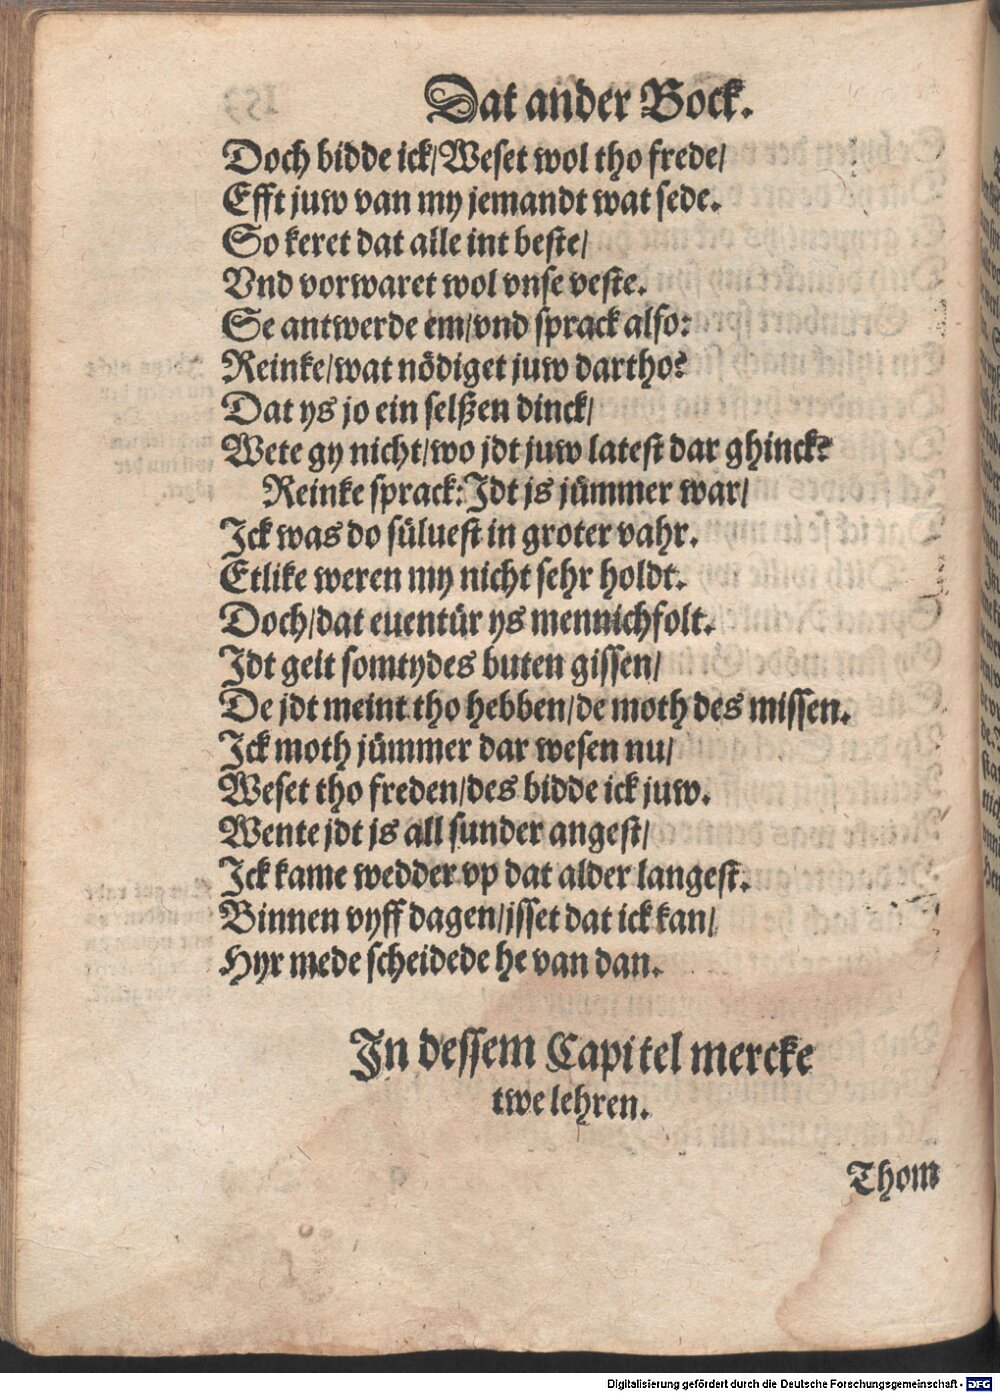 Dat ander Bock.
Doch bidde ick/Weset wol tho frede/
Efft juw van my jemandt wat sede.
So keret dat alle int beste/
Vnd vorwaret wol vnse veste.
Se antwerde em/vnd sprack also:
Reinke/wat nödiget juw dartho?
Dat ys jo ein selßen dinck/
Wete gy nicht/wo jdt juw latest dar ghinck?
Reinke sprack: Jdt js jümmer war/
Jck was do süluest in groter vahr.
Etlike weren my nicht sehr holdt.
Doch/dat euentür ys mennichfolt.
Jdt geit somtydes buten gissen/
De jdt meint tho hebben/de moth des missen.
Jck moth jümmer dar wesen nu/
Weset tho freden/des bidde ick juw.
Wente jdt js all sunder angest/
Jck kame wedder vp dat alder langest.
Binnen vyff dagen/jsset dat ick kan/
Hyr mede scheidede he van dan.
Jn dessem Capitel mercke
twe lehren.
Thom
Digitalisierung gefördert durch die Deutsche Forschungsgemeinschaft - DFG